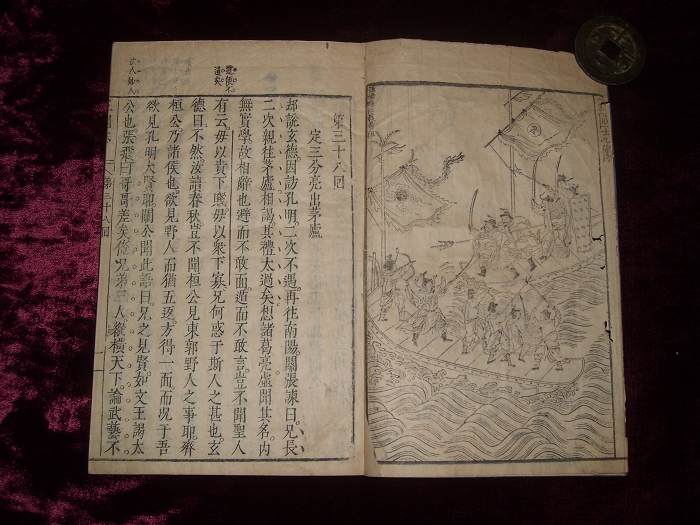 第三十八回
定三分亮出茅廬
却說玄德因訪孔明二次不遇再往南陽關張諫曰兄長
二次親往茅廬相謁其禮太過矣想諸葛亮虛聞其名內
無實學故相辭也避而不敢面遁而不敢言豈不聞聖人
有云毋以貴下賤毋以衆下寡兄何惑于斯人之甚也玄
德曰不然汝讀春秋豈不聞桓公見東郭野人之事耶齊
桓公乃諸侯也欲見野人而猶五返方得一面而况于吾
欲見孔明大賢耶關公聞此語曰兄之見賢如文王謁太
公也張飛曰哥哥差矣俺兄弟三人縱橫天下論武藝不
第三十八回